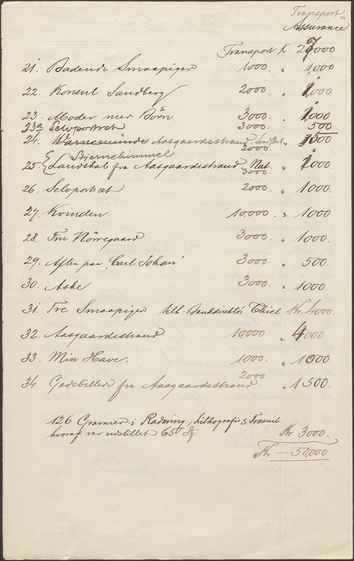 Transport
Assurance
Transport Kr 27000
21. Badende Smaapiger 1000. " 1000
22. Konsul Sandberg 2000. " 1000
23. Moder med Börn 3000. " 1000
23a Selvportræt 3000. 500
24. Warnemünde Aasgaardestrand 2000. " 1000
Stjernehimmel
25. Landskab fra Aasgaardestrand Nat. 3000. " 1000
26. Selvportræt 2000. " 1000
27. Kvinden 10,000. " 1000
28. Fru Nörregaard 3000. " 1000.
29. Aften paa "Carl Johan" 3000. " 500.
30. Aske 3000. " 1000.
31. Tre Smaapiger tilh. Bankdirektör Thiel Kr. 4000.
32. Aasgaardestrand 10000 " 4000
33. Min Have. 1000. " 1000
34. Gadebilled fra Aasgaardestrand 2000 " 1500.
126 Gravurer i Radering, Lithografi & Træsnit
hvoraf var udstillet 65 Kr. 3000.
Kr. 50,000